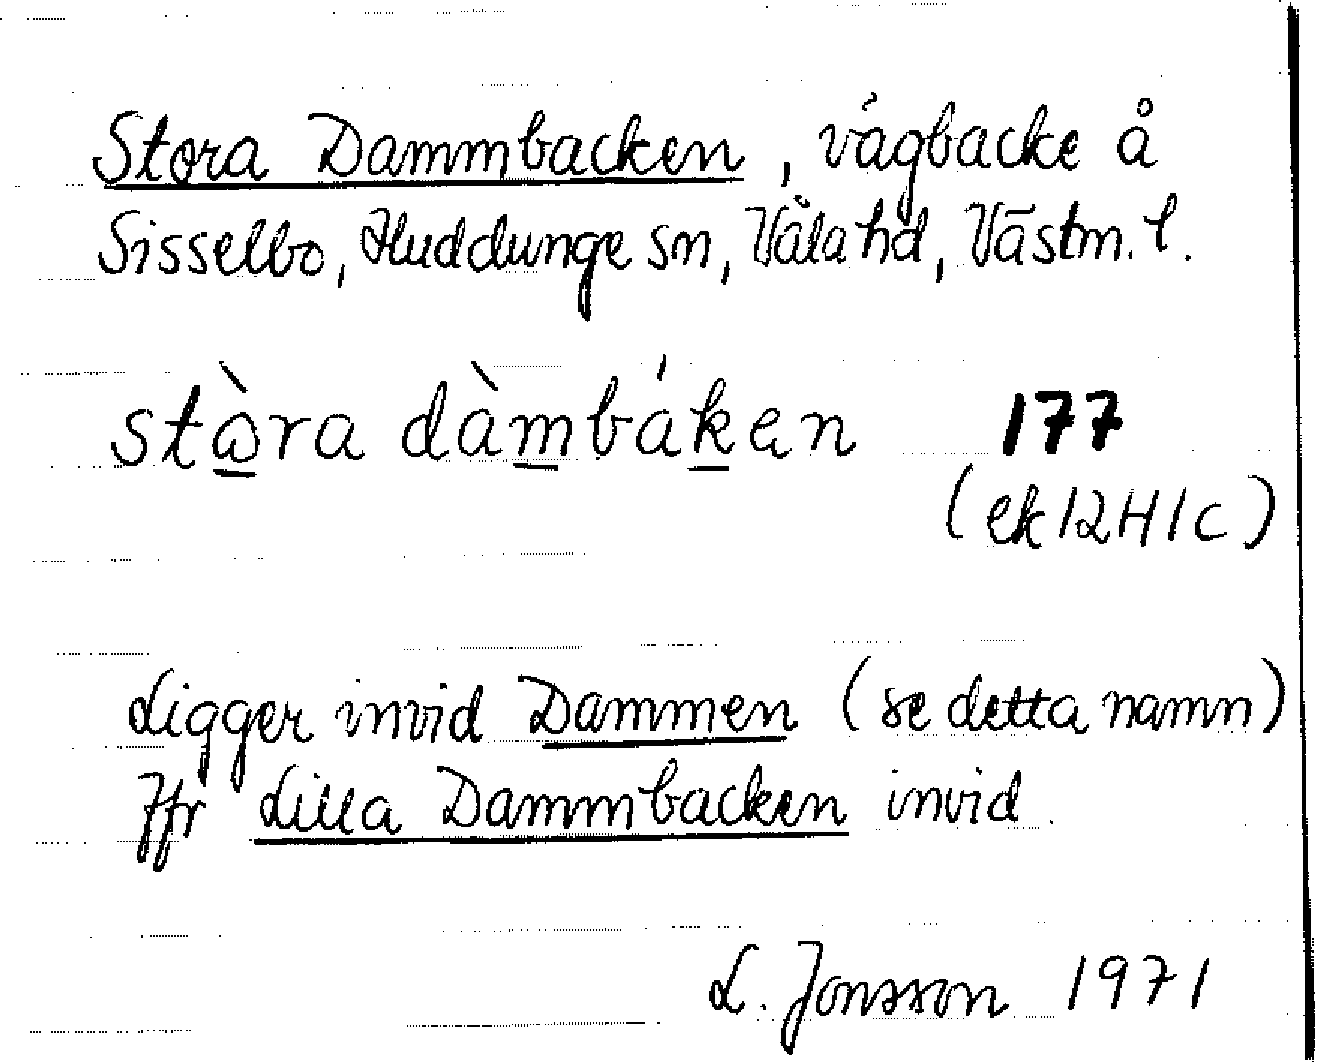 Stora Dammbacken, vägbacke å
Sisselbo, Huddunge sn, Våla hd, Västm. l.
stὼra dàmbáken 177
(ek 12H1c)
Ligger invid Dammen (se detta namn)
Jfr Lilla Dammbacken invid.
L. Jonsson 1971